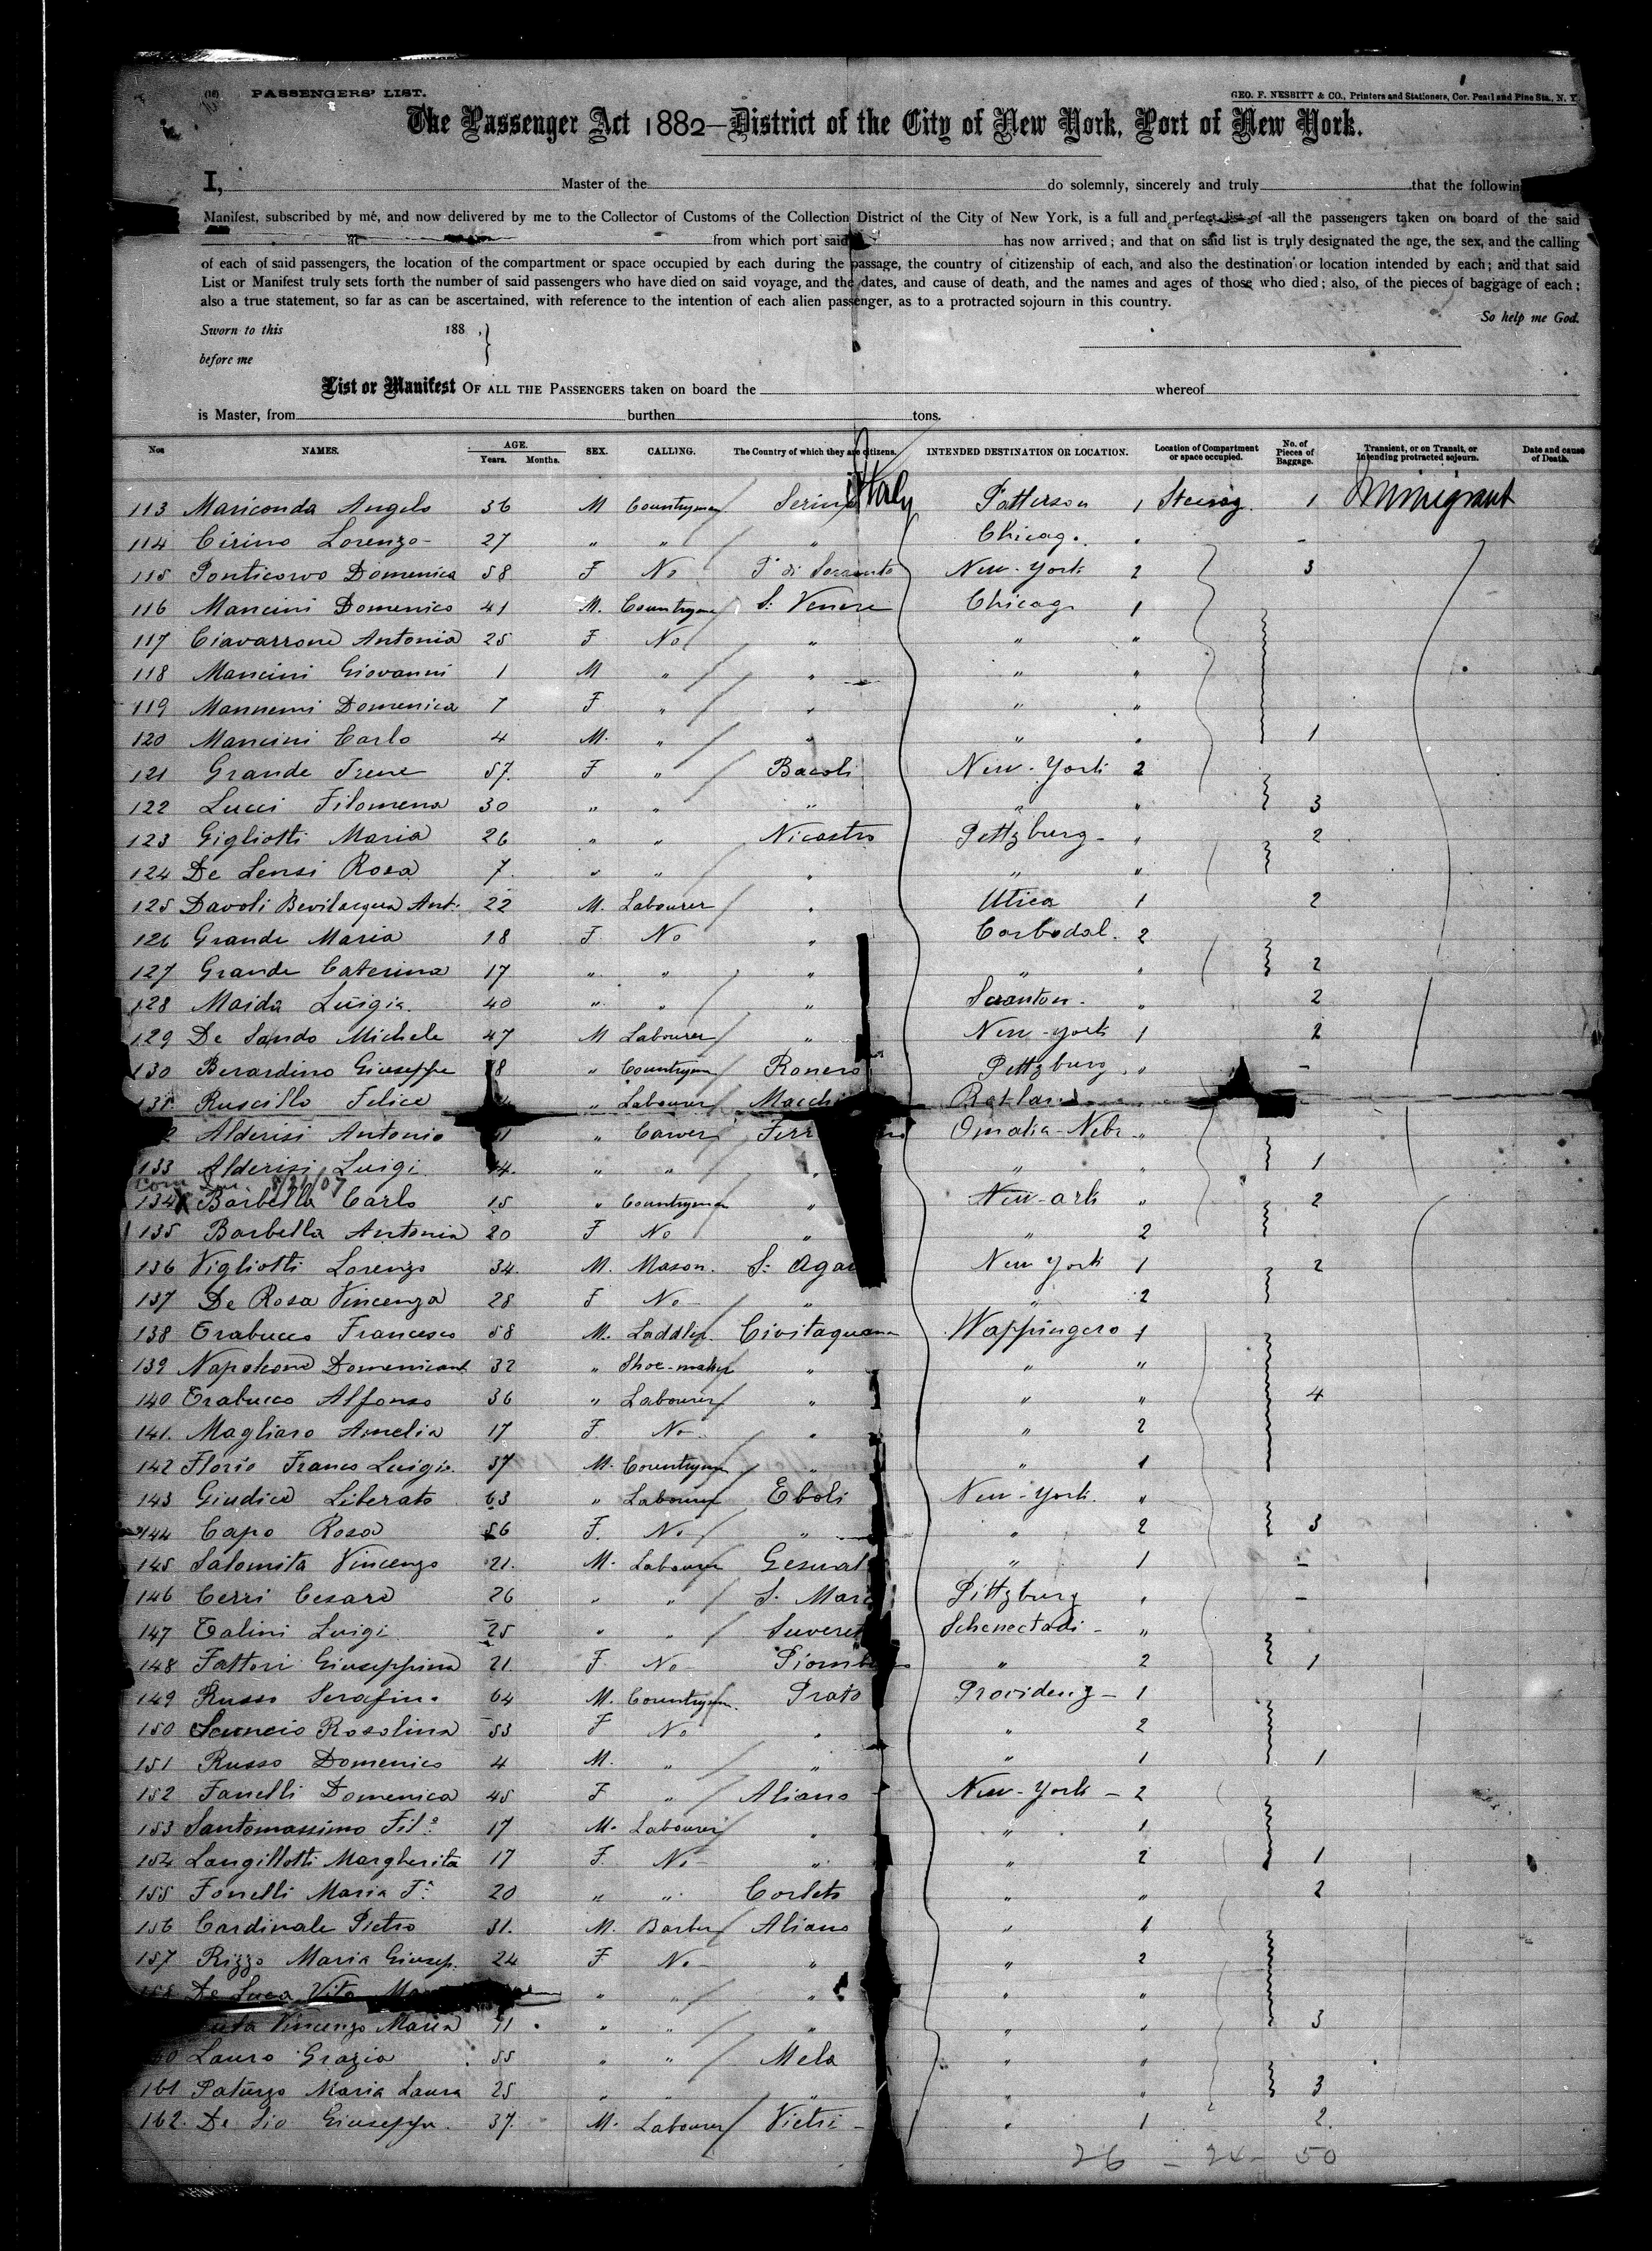 PASSENGERS' LIST.
GEO. F. NESBITT & CO., Printers and Stationers, Cor. Pearl and Pine Sts., N. Y.
The Passenger Act 1882—District of the City of New York, Port of New York.
I, Master of the do solemnly, sincerely and truly that the following
Manifest, subscribed by me, and now delivered by me to the Collector of Customs of the Collection District of the City of New York, is a full and perfect list of all the passengers taken on board of the said
from which port said has now arrived; and that on said list is truly designated the age, the sex, and the calling
of each of said passengers, the location of the compartment or space occupied by each during the passage, the country of citizenship of each, and also the destination or location intended by each; and that said
List or Manifest truly sets forth the number of said passengers who have died on said voyage, and the dates, and cause of death, and the names and ages of those who died; also, of the pieces of baggage of each;
also a true statement, so far as can be ascertained, with reference to the intention of each alien passenger, as to a protracted sojourn in this country.
So help me God.
Sworn to this 188 .
before me
List or Manifest OF ALL THE PASSENGERS taken on board the whereof
is Master, from burthen tons.
Nos NAMES. AGE. Years. Months. SEX. CALLING. The Country of which they are citizens. INTENDED DESTINATION OR LOCATION. Location of Compartment or space occupied. No. of Pieces of Baggage. Transient, or on Transit, or Intending protracted sojourn. Date and cause of Death.
113 Mariconda Angelo 36 M Countryman Serino Italy Patterson 1 Steerag. 1 Immigrant
114 Cirino Lorenzo 27 " " " Chicago. " -
115 Ponticorvo Domenica 58 F No P. di Sorrento New-York 2 3
116 Mancini Domenico 41 M. Countryman S. Venere Chicago 1
117 Ciavarrone Antonia 25 F No " " "
118 Mancini Giovanni 1 M " " " "
119 Domenica 7 F " " " "
120 Mancini Carlo 4 M. " " " " 1
121 Grande Irene 57. F " Bacoli New-York 2
122 Lucci Filomena 30 " " " " " 3
123 Gigliotti Maria 26 " " Nicastro Pittzburg - " 2
124 De Lensi Rosa 7. " " " " "
125 Davoli Bevilacqua Ant. 22 M. Labourer " Utica 1 2
126 Grande Maria 18 F No " Carbodal. 2
127 Grande Caterina 17 " " " " " 2
128 Maida Luigia 40 " " " Scranton. " 2
129 De Sando Michele 47 M Labourer " New-York 1 2
130 Berardino Giuseppe 8 " Countryman Ronero Pittzburg " -
131. Ruscillo Felice " Labourer Macchi
2 Alderisi Antonio 1 " Carver Ferr Omaha-Nebr "
133 Alderisi Luigi 14. " " " " " 1
8/21/07
134 X Barbella Carlo 15 " Countryman " New-ark " 2
135 Barbella Antonia 20 F No " " 2
136 Vigliotti Lorenzo 34. M. Mason. S. Aga New York 1 2
137 De Rosa Vincenza 28 F No " " 2
138 Trabucco Francesco 58 M. Saddler. Civitaquana Wappingers 1
139 Napoleone Domenicant. 32 " Shoe-maker " " "
140 Trabucco Alfonso 36 " Labourer " " " 4
141. Magliaro Amelia 17 F. No " " 2
142 Florio Franco Luigi 37 M. Countryman " " 1
143 Giudice Liberato 63 " Labourer Eboli New-York. "
144 Capo Rosa 56 F. No " " 2 3
145 Salomita Vincenzo 21. M. Labourer Gesual " 1 -
146 Cerri Cesare 26 " " S. Marc Pittzburg " -
147 Talini Luigi 25 " " Suveret Schenectadi - "
148 Fattori Giuseppina 21. F. No Piombi " 2 1
149 Russo Serafino 64 M. Countryman. Prato Providenz - 1
150 Rosolina 53 F No " " 2
151 Russo Domenico 4 M. " " " 1 1
152 Fanelli Domenica 45 F " Aliano New-York - 2
153 Santomassimo Fil.o 17 M. Labourer " " 1
154 Langillotti Margherita 17 F. No " " 2 1
155 Fanelli Maria F.a 20 " " Corleto " " 2
156 Cardinale Pietro 31. M. Barber Aliano " 1
157 Rizzo Maria Giusep. 24 F No - " " 2
158 De Luca Vito " " " " "
Vincenza Maria " " " " " 3
60 Lauro Grazia 55 " " Mela " "
161 Maria Laura 25 " " " " " 3
162. De Sio Giuseppe. 37. M. Labourer Vietri - " 1 2.
26 - 24 - 50